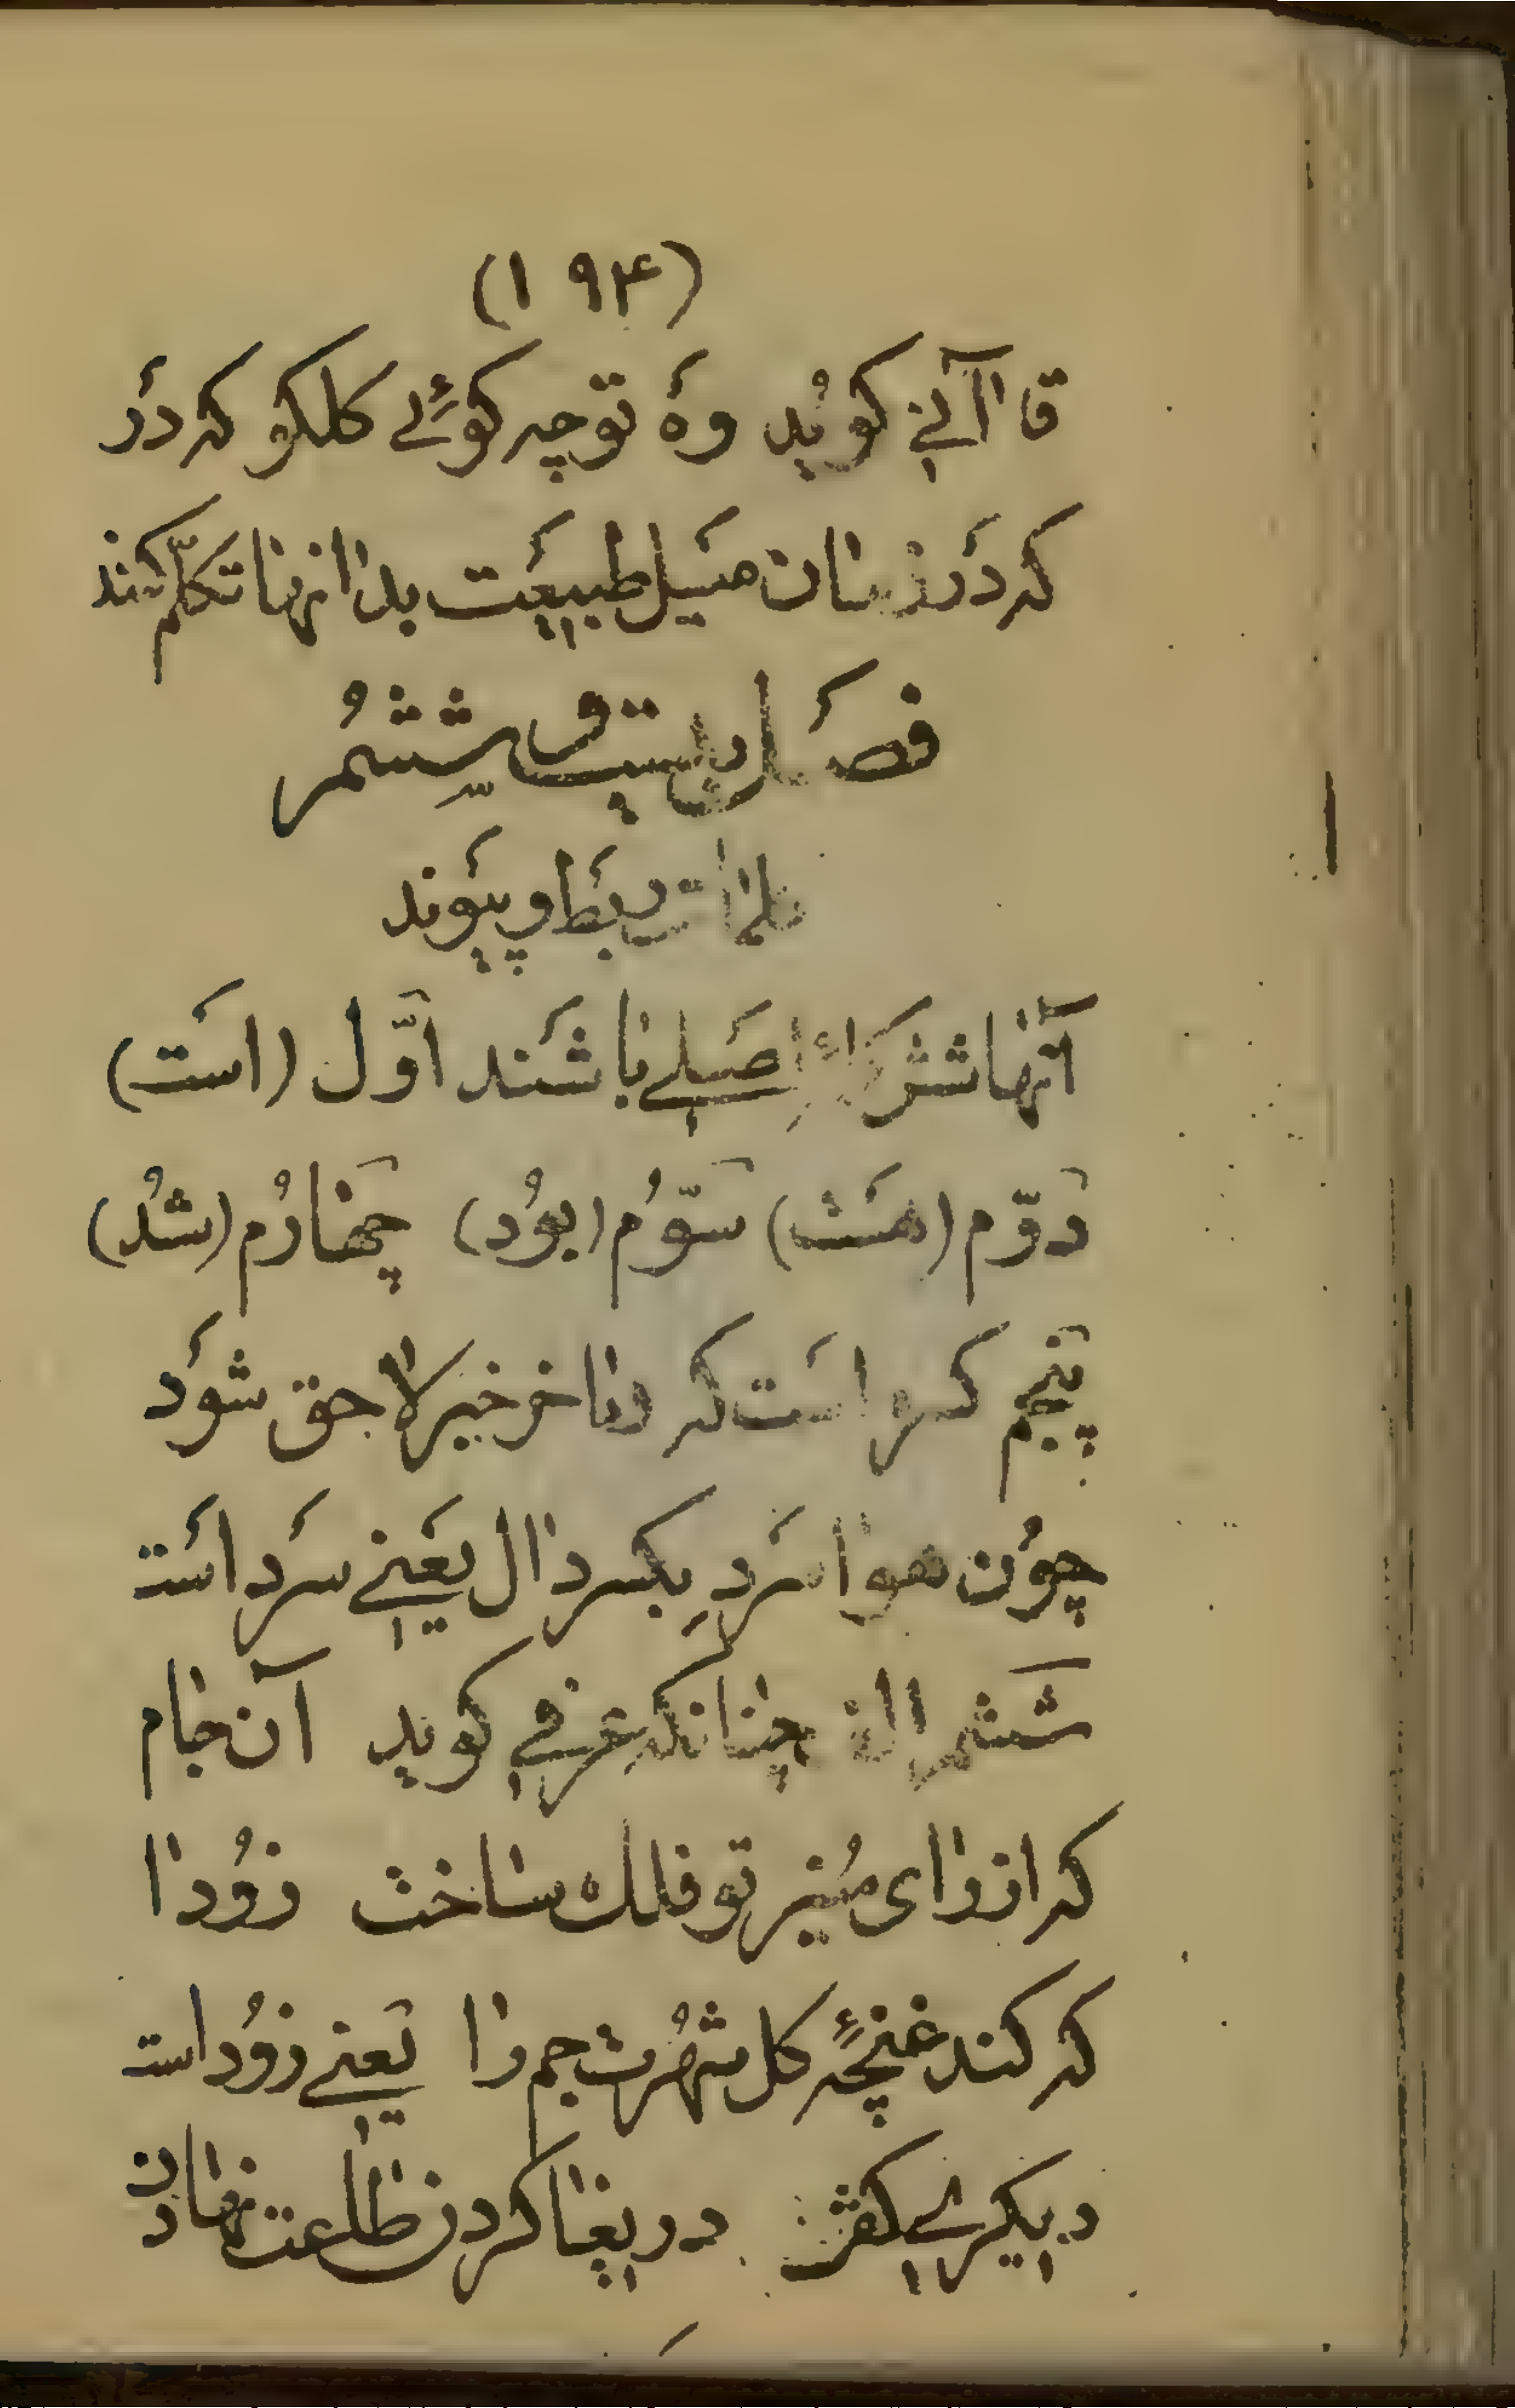 (۱۹۴)
قاآنی کوید وه توچه کوئی کلکو که در
که در زمان میل طبیعت بدانها تکلم کنند
فصل بیست و ششم
کلمات ربط و پیوند
آنها شش اصلی باشند اوّل (است)
دوّم (هست) سوّم (بود) چهارم (شد)
پنجم کسر است که در آخر خبر لاحق شود
چون هوا سردِ بکسر دال یعنی سرد است
ششم الف چنانکه عرفی کوید آن جام
که از رای منیر تو فلک ساخت زودا
که کند غنچهٔ کل شهرت جم را یعنی زود است
دیکری کفته دریغا کردن طاعت نهادن